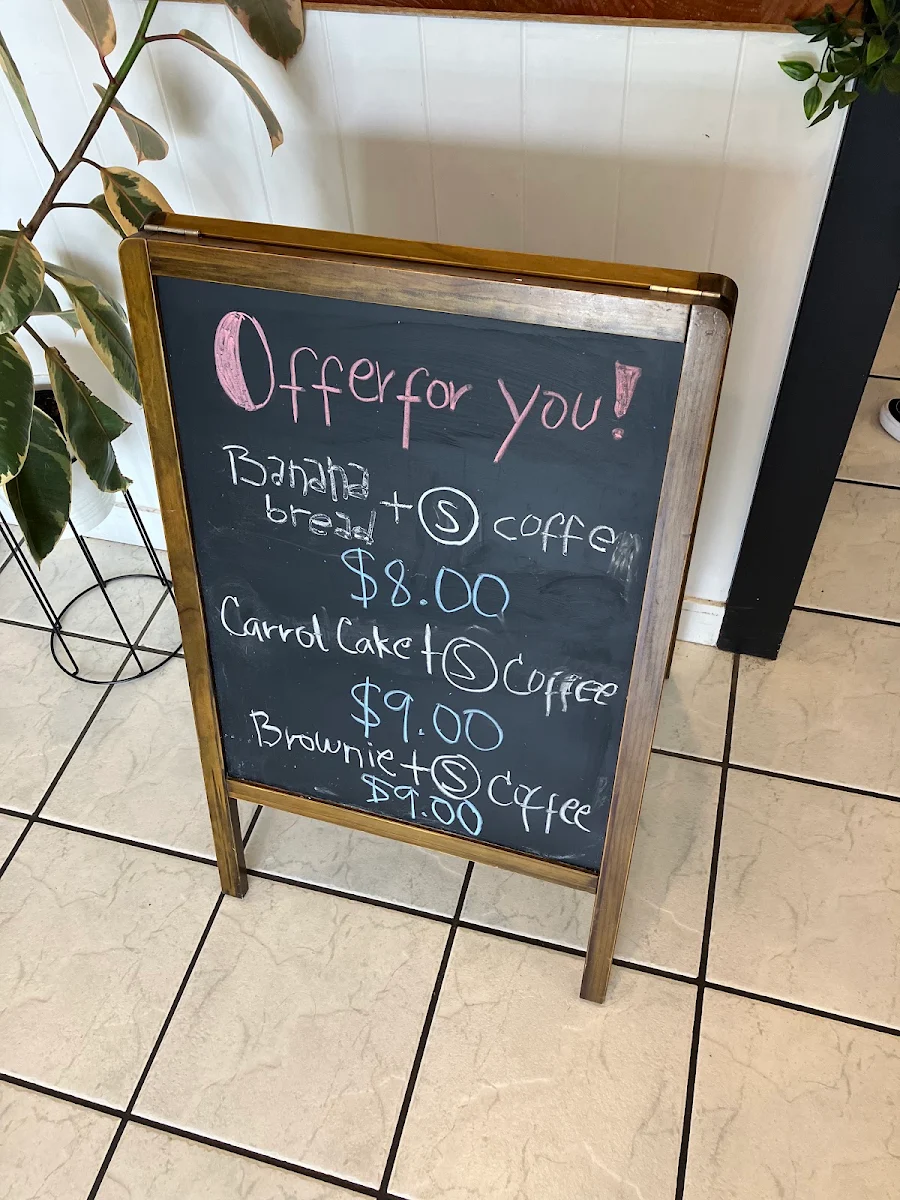 Offer for you!
Banana
bread + S coffe
$8.00
Carrot Cake + S Coffee
$9.00
Brownie + S Coffee
$9.00